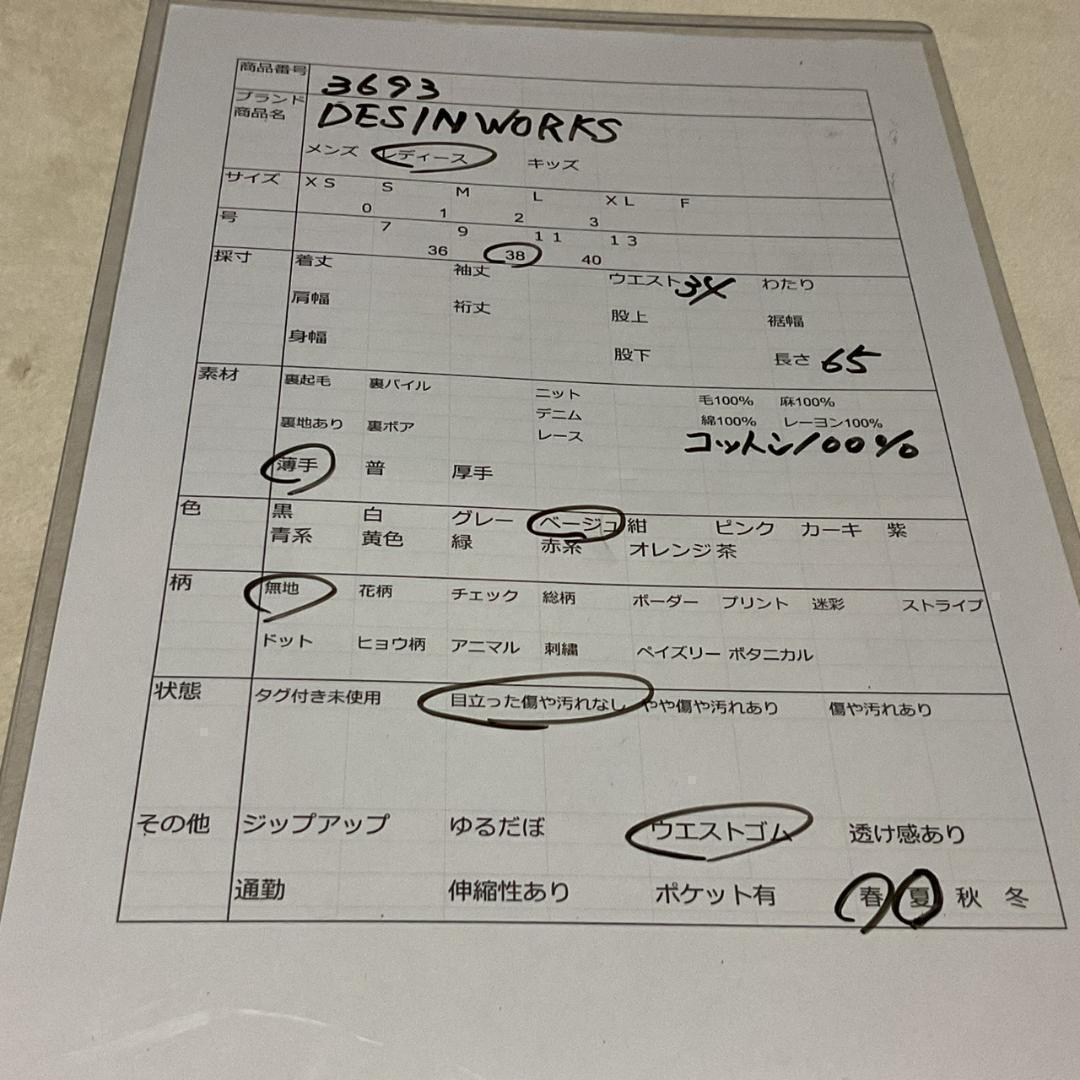 商品番号 3693
ブランド 商品名 DESINWORKS
メンズ レディース キッズ
サイズ XS S M L XL F
0 1 2 3
号 7 9 11 13
36 38 40
採寸 着丈 袖丈 ウエスト 34 わたり
肩幅 裄丈 股上 裾幅
身幅 股下 長さ 65
素材 裏起毛 裏パイル ニット 毛100% 麻100%
デニム 綿100% レーヨン100%
裏地あり 裏ボア レース コットン100%
薄手 普 厚手
色 黒 白 グレー ベージュ 紺 ピンク カーキ 紫
青系 黄色 緑 赤系 オレンジ 茶
柄 無地 花柄 チェック 総柄 ボーダー プリント 迷彩 ストライプ
ドット ヒョウ柄 アニマル 刺繍 ペイズリー ボタニカル
状態 タグ付き未使用 目立った傷や汚れなし やや傷や汚れあり 傷や汚れあり
その他 ジップアップ ゆるだぼ ウエストゴム 透け感あり
通勤 伸縮性あり ポケット有 春 夏 秋 冬